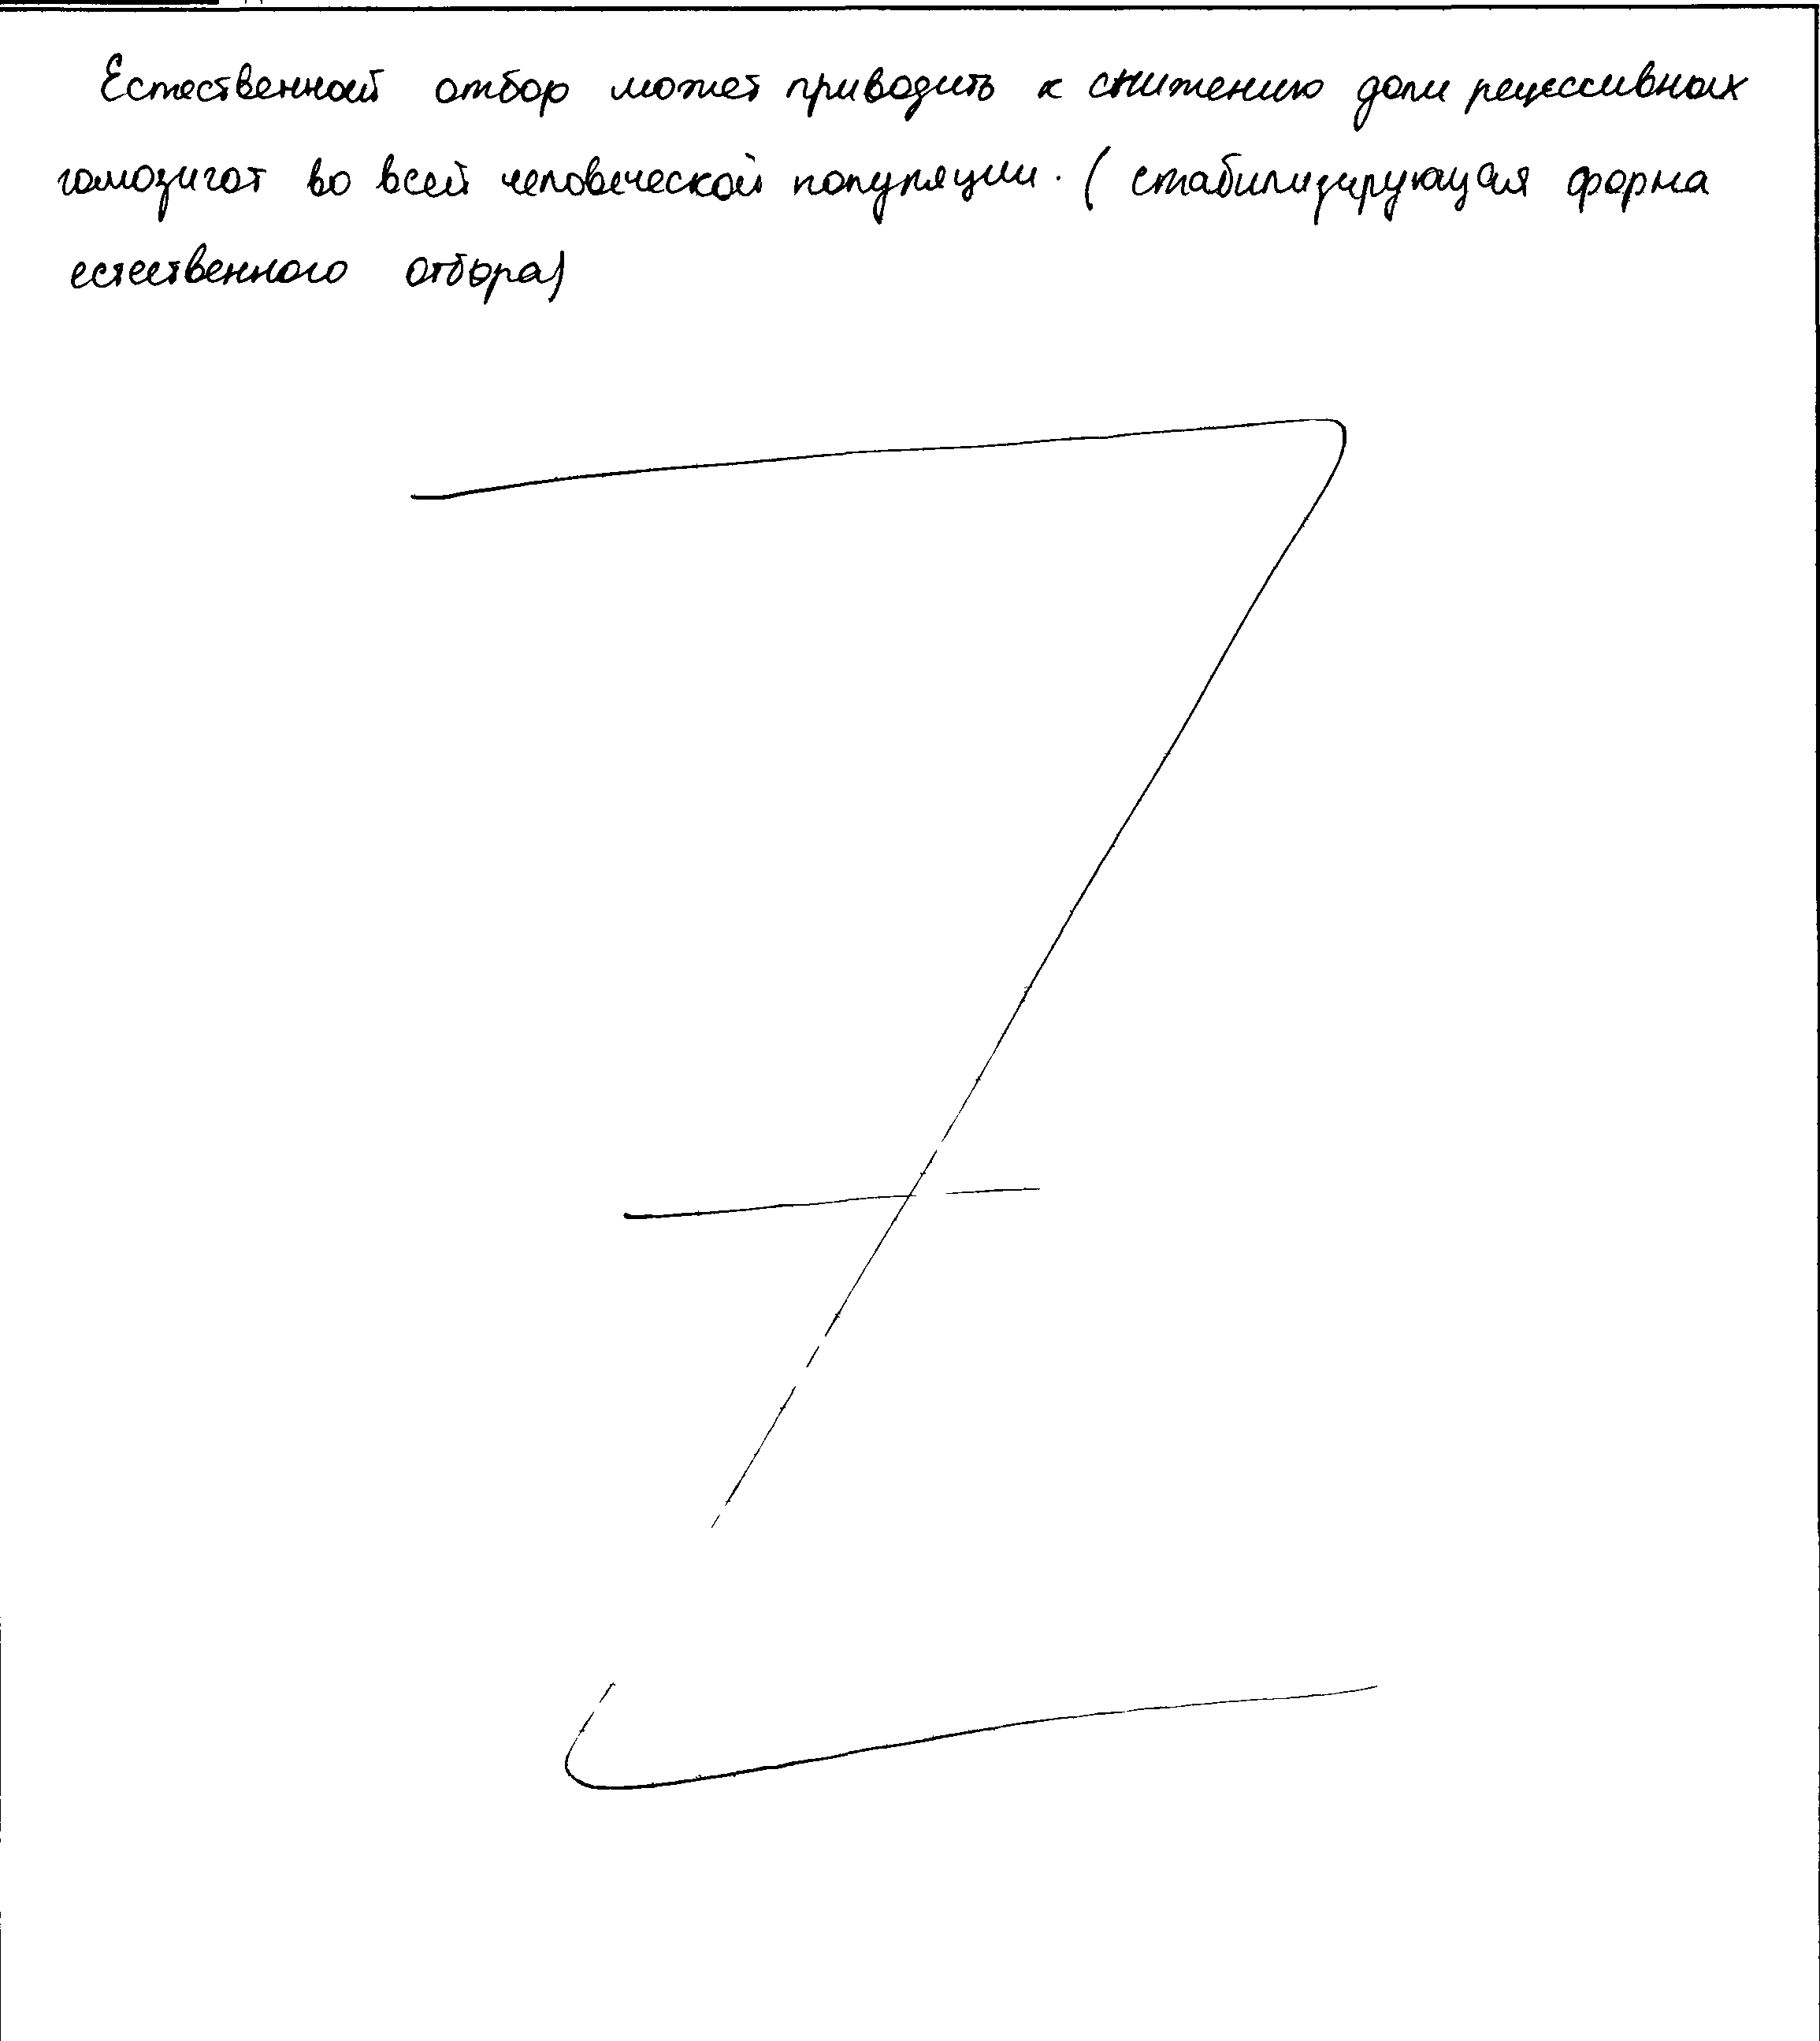 Естественный отбор может приводить к снижению доли рецессивных
гомозигот во всей человеческой популяции. (стабилизирующая форма
естественного отбора)